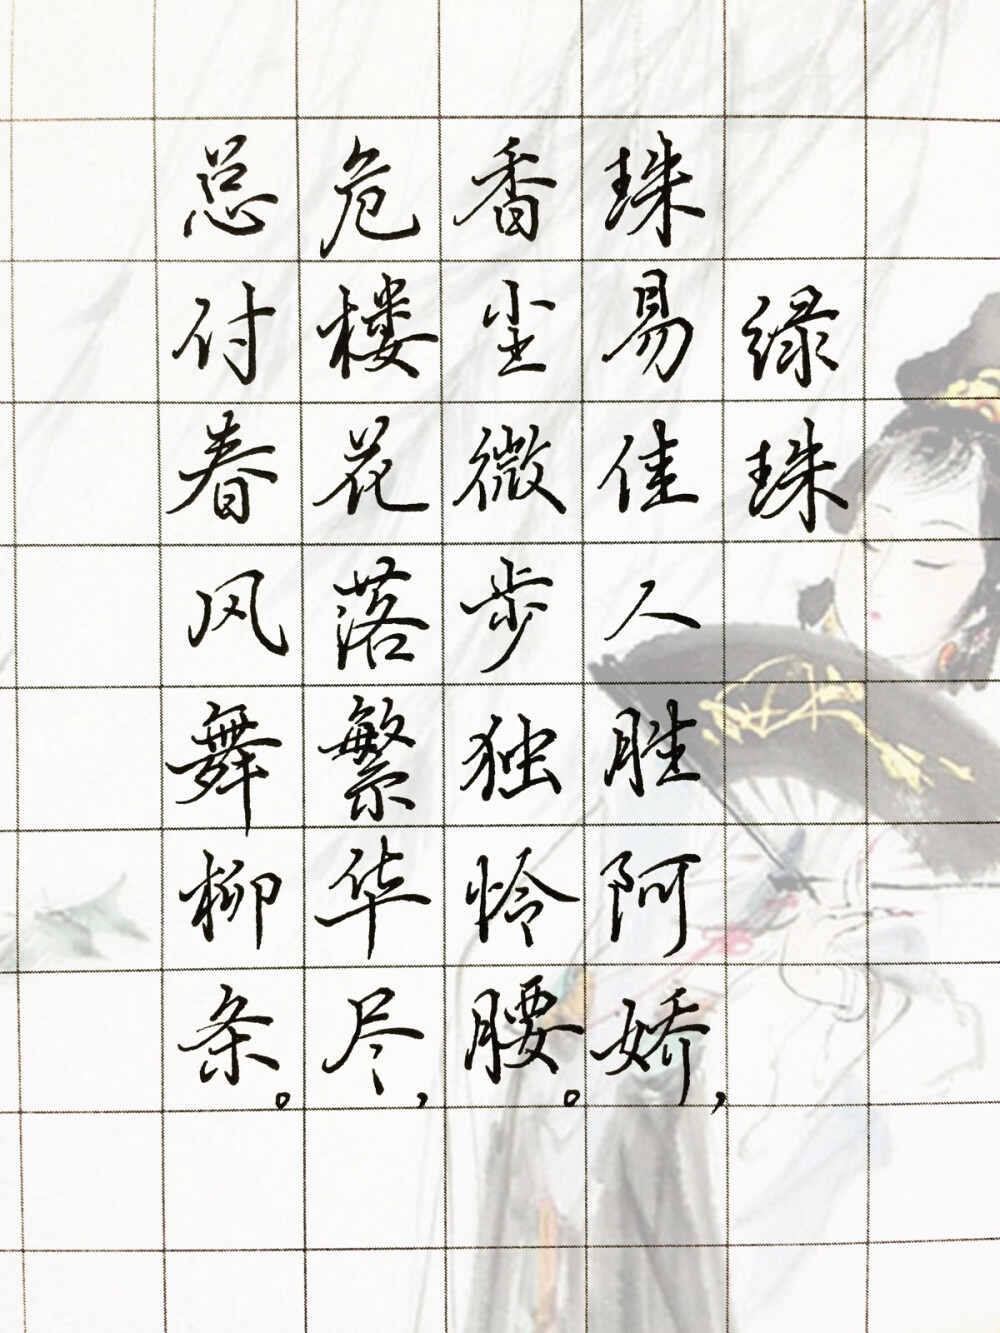 绿珠
珠易佳人胜阿娇，
香尘微步独怜腰。
危楼花落繁华尽，
总付春风舞柳条。